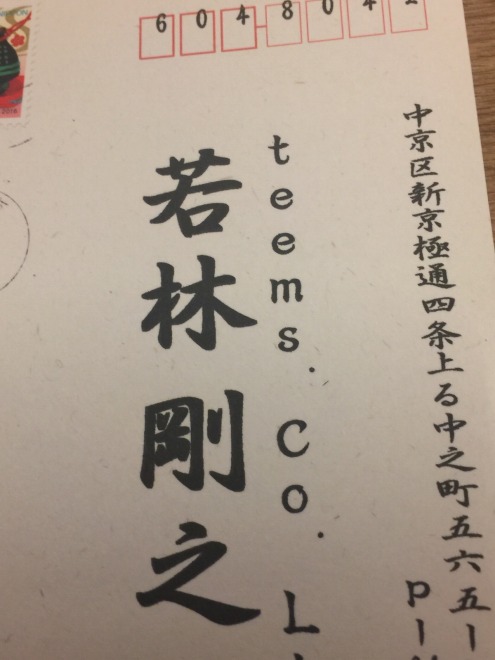 6048042
中京区新京極通四条上る中之町五六五ー
teems. Co. L
若林剛之